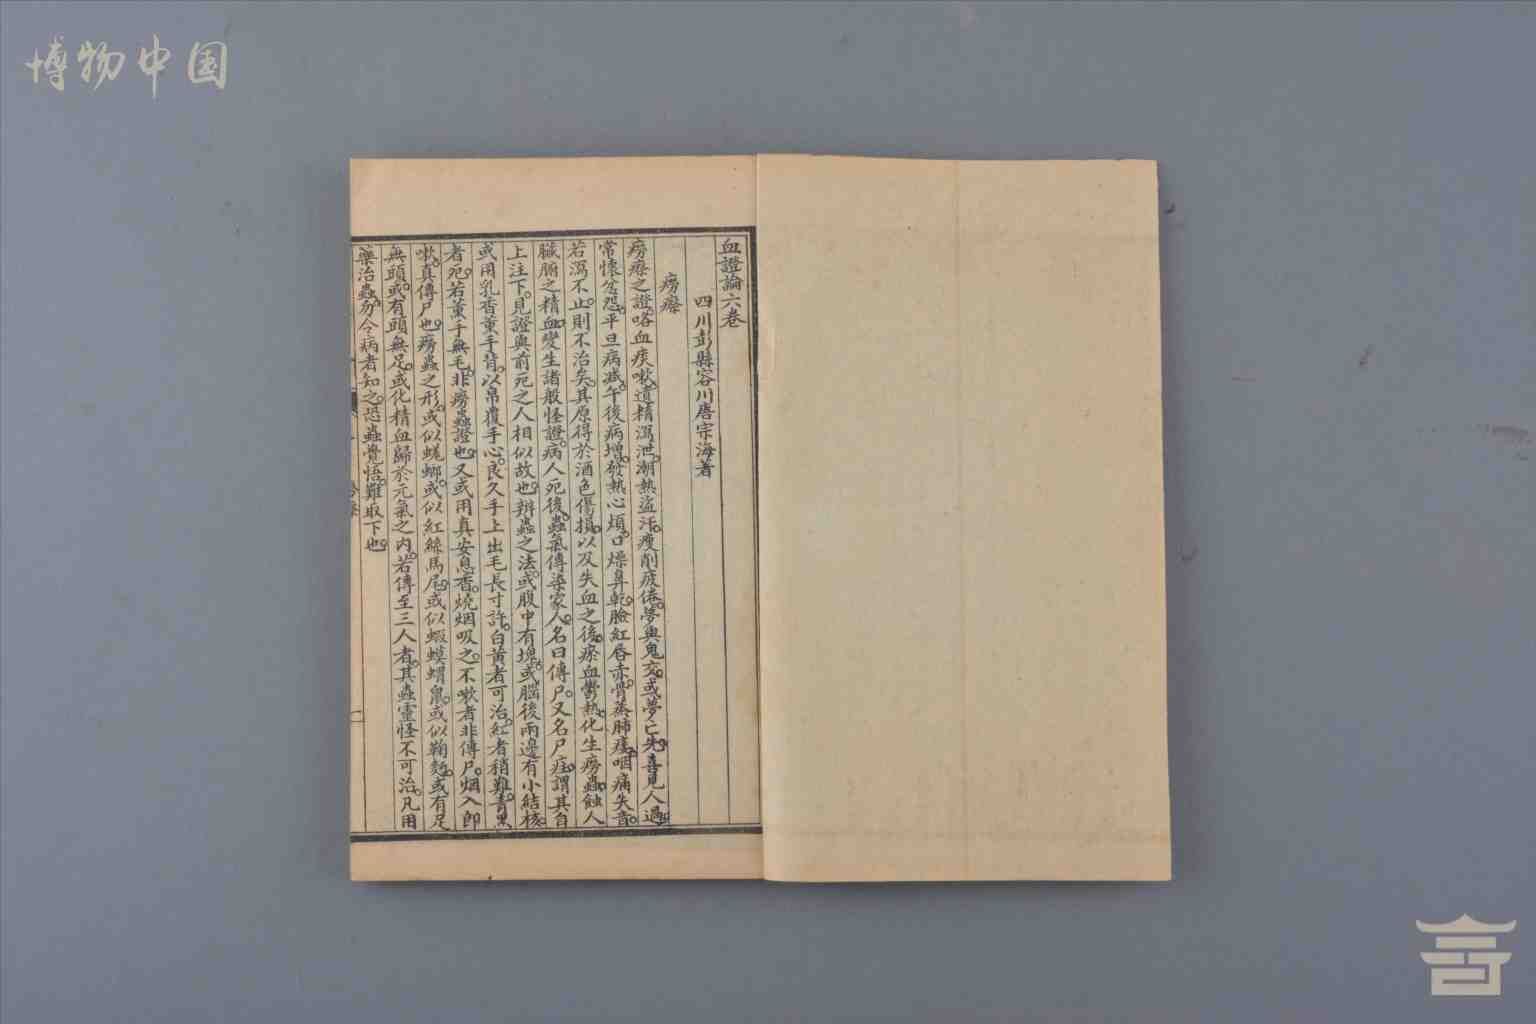 博物中国
血證論六卷
四川彭縣容川唐宗海著
癆瘵
癆瘵之證。咯血痰嗽。遺精瀉泄。潮熱盜汗。瘦削疲倦。夢與鬼交。或夢亡先。喜見人過。
常懷忿怨。平旦病減。午後病增。發熱心煩。口燥鼻乾。臉紅唇赤。骨蒸肺痿。咽痛失音。
若瀉不止。則不治矣。其原得於酒色傷損。以及失血之後。瘀血鬱熱。化生癆蟲。蝕人
臟腑之精血。變生諸般怪證。病人死後。蟲氣傳染家人。名曰傳尸。又名尸疰。謂其自
上注下。見證與前死之人相似故也。辨蟲之法。或腹中有塊。或腦後兩邊有小結核。
或用乳香薰手背。以帛覆手心。良久手上出毛長寸許。白黃者可治。紅者稍難。青黑
者死。若薰手無毛。非癆蟲證也。又或用真安息香。燒烟吸之。不嗽者非傳尸。烟入卽
嗽。真傳尸也。癆蟲之形。或似蜣螂。或似紅絲馬尾。或似蝦蟆蝟鼠。或似鞠麪。或有足
無頭。或有頭無足。或化精血歸於元氣之內。若傳至三人者。其蟲靈怪不可治。凡用
藥治蟲。勿令病者知之。恐蟲覺悟。難取下也。